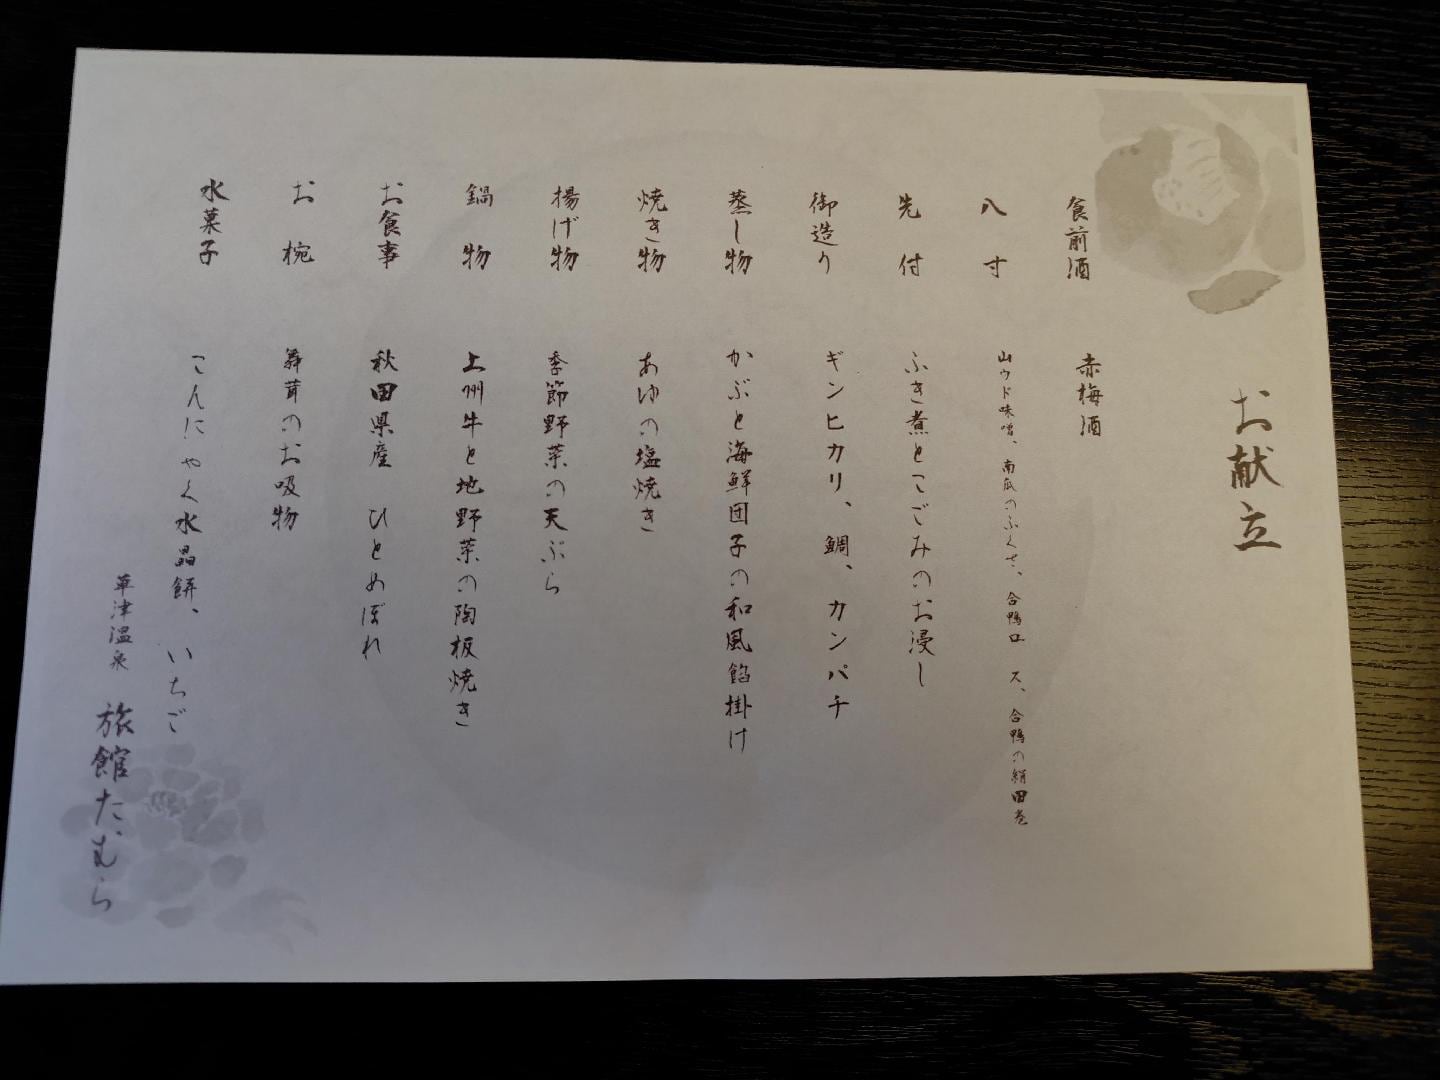 お献立
食前酒　赤梅酒
八寸　山ウド味噌、南瓜のふくさ、合鴨ロース、合鴨の絹田巻
先付　ふき煮とこごみのお浸し
御造り　ギンヒカリ、鯛、カンパチ
蒸し物　かぶと海鮮団子の和風餡掛け
焼き物　あゆの塩焼き
揚げ物　季節野菜の天ぷら
鍋物　上州牛と地野菜の陶板焼き
お食事　秋田県産　ひとめぼれ
お椀　舞茸のお吸物
水菓子　こんにゃく水晶餅、いちご
草津温泉　旅館たむら